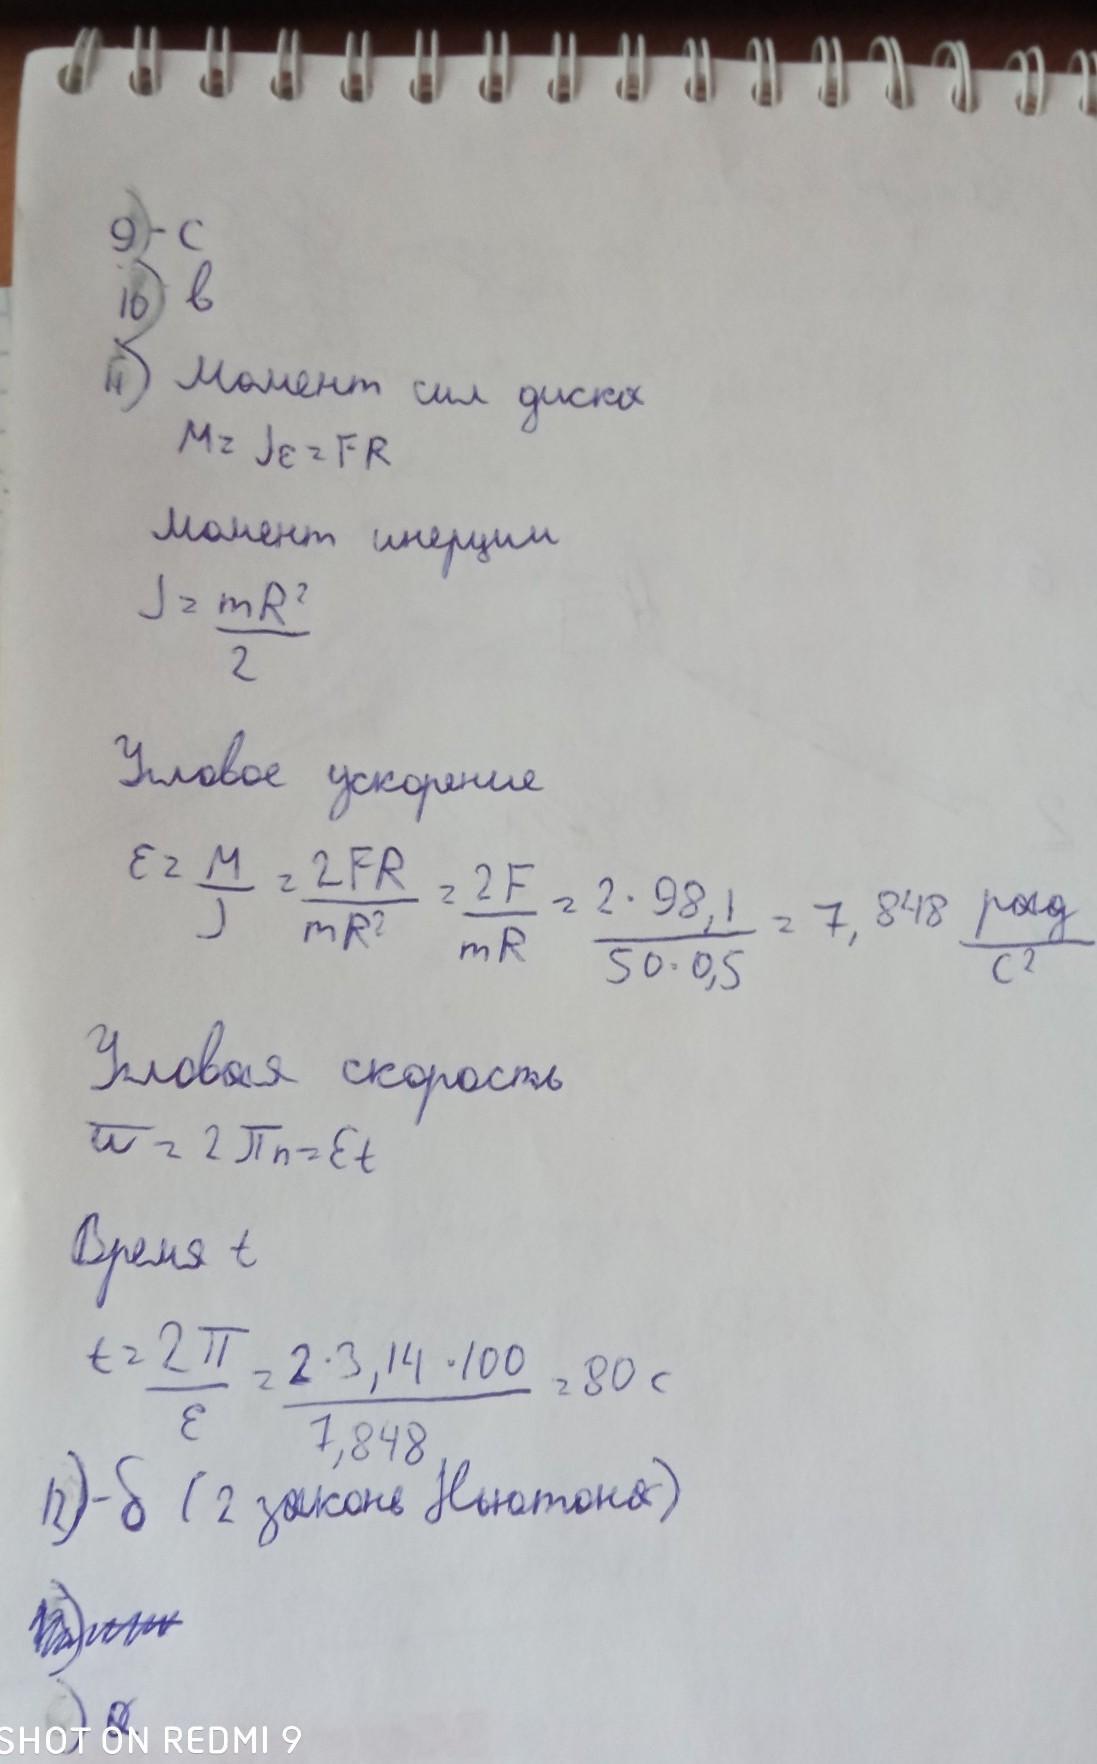 9)-с
10) в
11) Момент сил диска
M = Jε = FR
Момент инерции
J = mR²/2
Угловое ускорение
ε = M/J = 2FR/mR² = 2F/mR = 2·98,1/50·0,5 = 7,848 рад/с²
Угловая скорость
ω = 2πn = εt
Время t
t = 2π/ε = 2·3,14·100/7,848 = 80 с
12)-б (2 законь Ньютона)
) а
SHOT ON REDMI 9